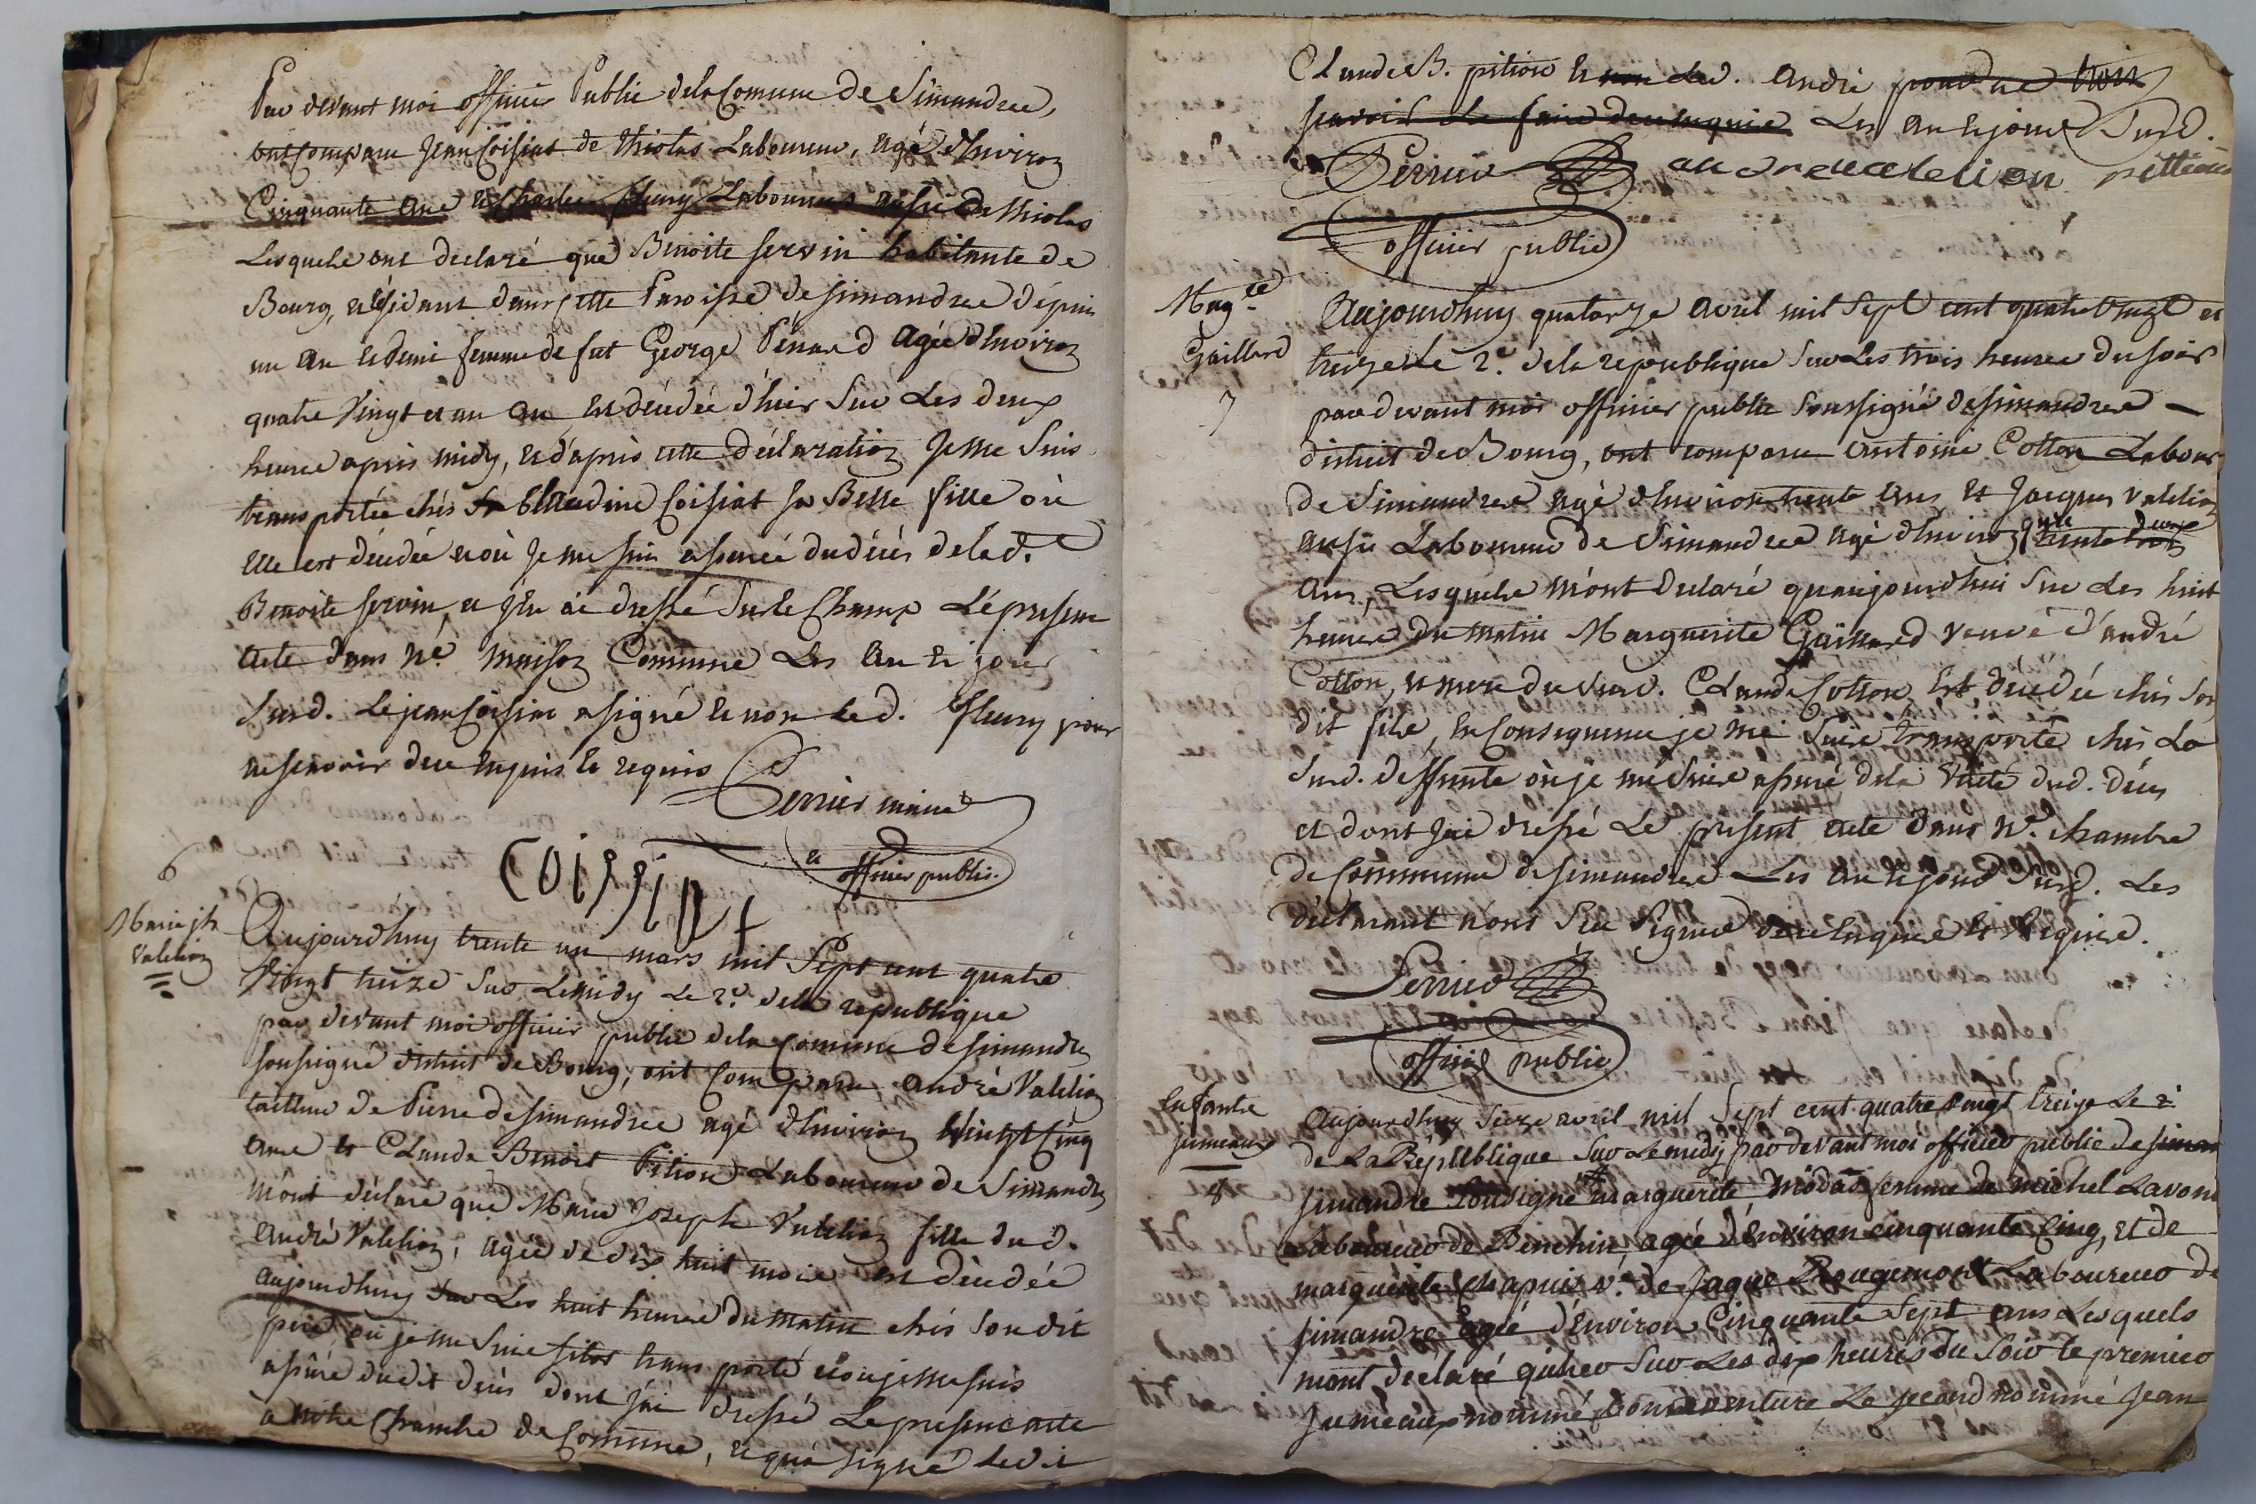 Par devant moi officier Public dela Comune de Simandre,
ont Comparu Jean Coisiat de Thiolas Laboureur, agé d'Environ
Cinquante ans et Charles fleury Laboureur aussi de Thiolas
Lesquels ont declaré que Benoite servin habitante de
Bourg, résidant dans cette Paroisse de simandre depuis
un an et demi femme de fut George Penard agée d'Environ
quatre Vingt et un an est décédée d'hier Sur Les deux
heures apres midy, et d'après cette déclaration Je me Suis
transportée chés Claudine Coisiat sa Belle fille où
elle est décédée et où Je me suis assurée du décès de lad.
Benoite servin, et j'En ai dressé Sur le Champ Le présent
acte dans n.e maison Commune Les an et jour
Susd. Le jean Coisiat a signé et non led. fleury pour
ne scavoir de ce enquis et requis
Perrier maire
et
officier public
Coissiat
6
Marie jh
Valelion
Aujourdhuy trente un mars mil Sept cent quatre
Vingt treize Sur Le midy Le 2.e dela republique
par devant moi officier public dela Comune de simandre
soussigné district de Bourg, ont Comparu, andré Valelion
tailleur de Pierre de simandre agé d'Environ Vingt Cinq
ans et Claude Benoit Pition Laboureur de Simandre
m'ont déclaré que Marie Joseph Valelion fille du d.
andré Valelion, agée de dix huit mois est décédée
aujourdhuy Sur Les huit heures du matin chés son dit
père où je me Suis sitot transporté et où je me suis
assuré dudit décès dont j'ai dressé Le présent acte
a notre Chambre de Comune, et qu'a signé Ledit
Claude B. pition et non led. andré pour ne
scavoir le faire de ce enquis Les an et jour Susd.
Perrier andre valelion pition
officier public
Mag.te
Gaillard
7
Aujourdhuy quatorze avril mil Sept cent quatre vingt et
treize le 2.e dela republique Sur Les trois heures du soir
par devant moi officier public Soussigné de simandre
district de Bourg, ont comparu antoine Cotton Labour
de Simandre agé d'Environ trente ans et Jacques Valelion
aussi Laboureur de Simandre agé d'Environ
ans, Lesquels m'ont declaré qu'aujourdhui Sur les huit
heures du matin Marguerite Gaillard veuve d'andré
Cotton, et mere du Susd. Claude Cotton Est décédée chés son
dit fils, En Consequence je me Suis transporté chés La
Susd. deffunte où je me Suis assuré dela vérité dud. décès
et dont j'ai dressé Le présent acte dans n.e chambre
de Commune de simandre Les an et jour Susd. Les
déclarant n'ont Scu Signer de ce Enquis et Requis.
Perrier
officier public
Enfants
jumeaux
8
aujourdhuy Seize avril mil Sept cent quatre vingt treize Le 2
de La République Sur Le midy par devant moi officier public de siman
simandre soussigné Marguerite Modas femme de Michel Lavom
Laboureur de Binchin, agée d'Environ cinquante Cinq, et de
marguerite chapuis v.e de Jaque Rougemont Laboureur de
simandre agée d'Environ Cinquante Sept ans Lesquels
mont déclaré qu'hier Sur Les dix heures du Soir le premier
Jumeaux nommé bonaventure Le second nommé Jean